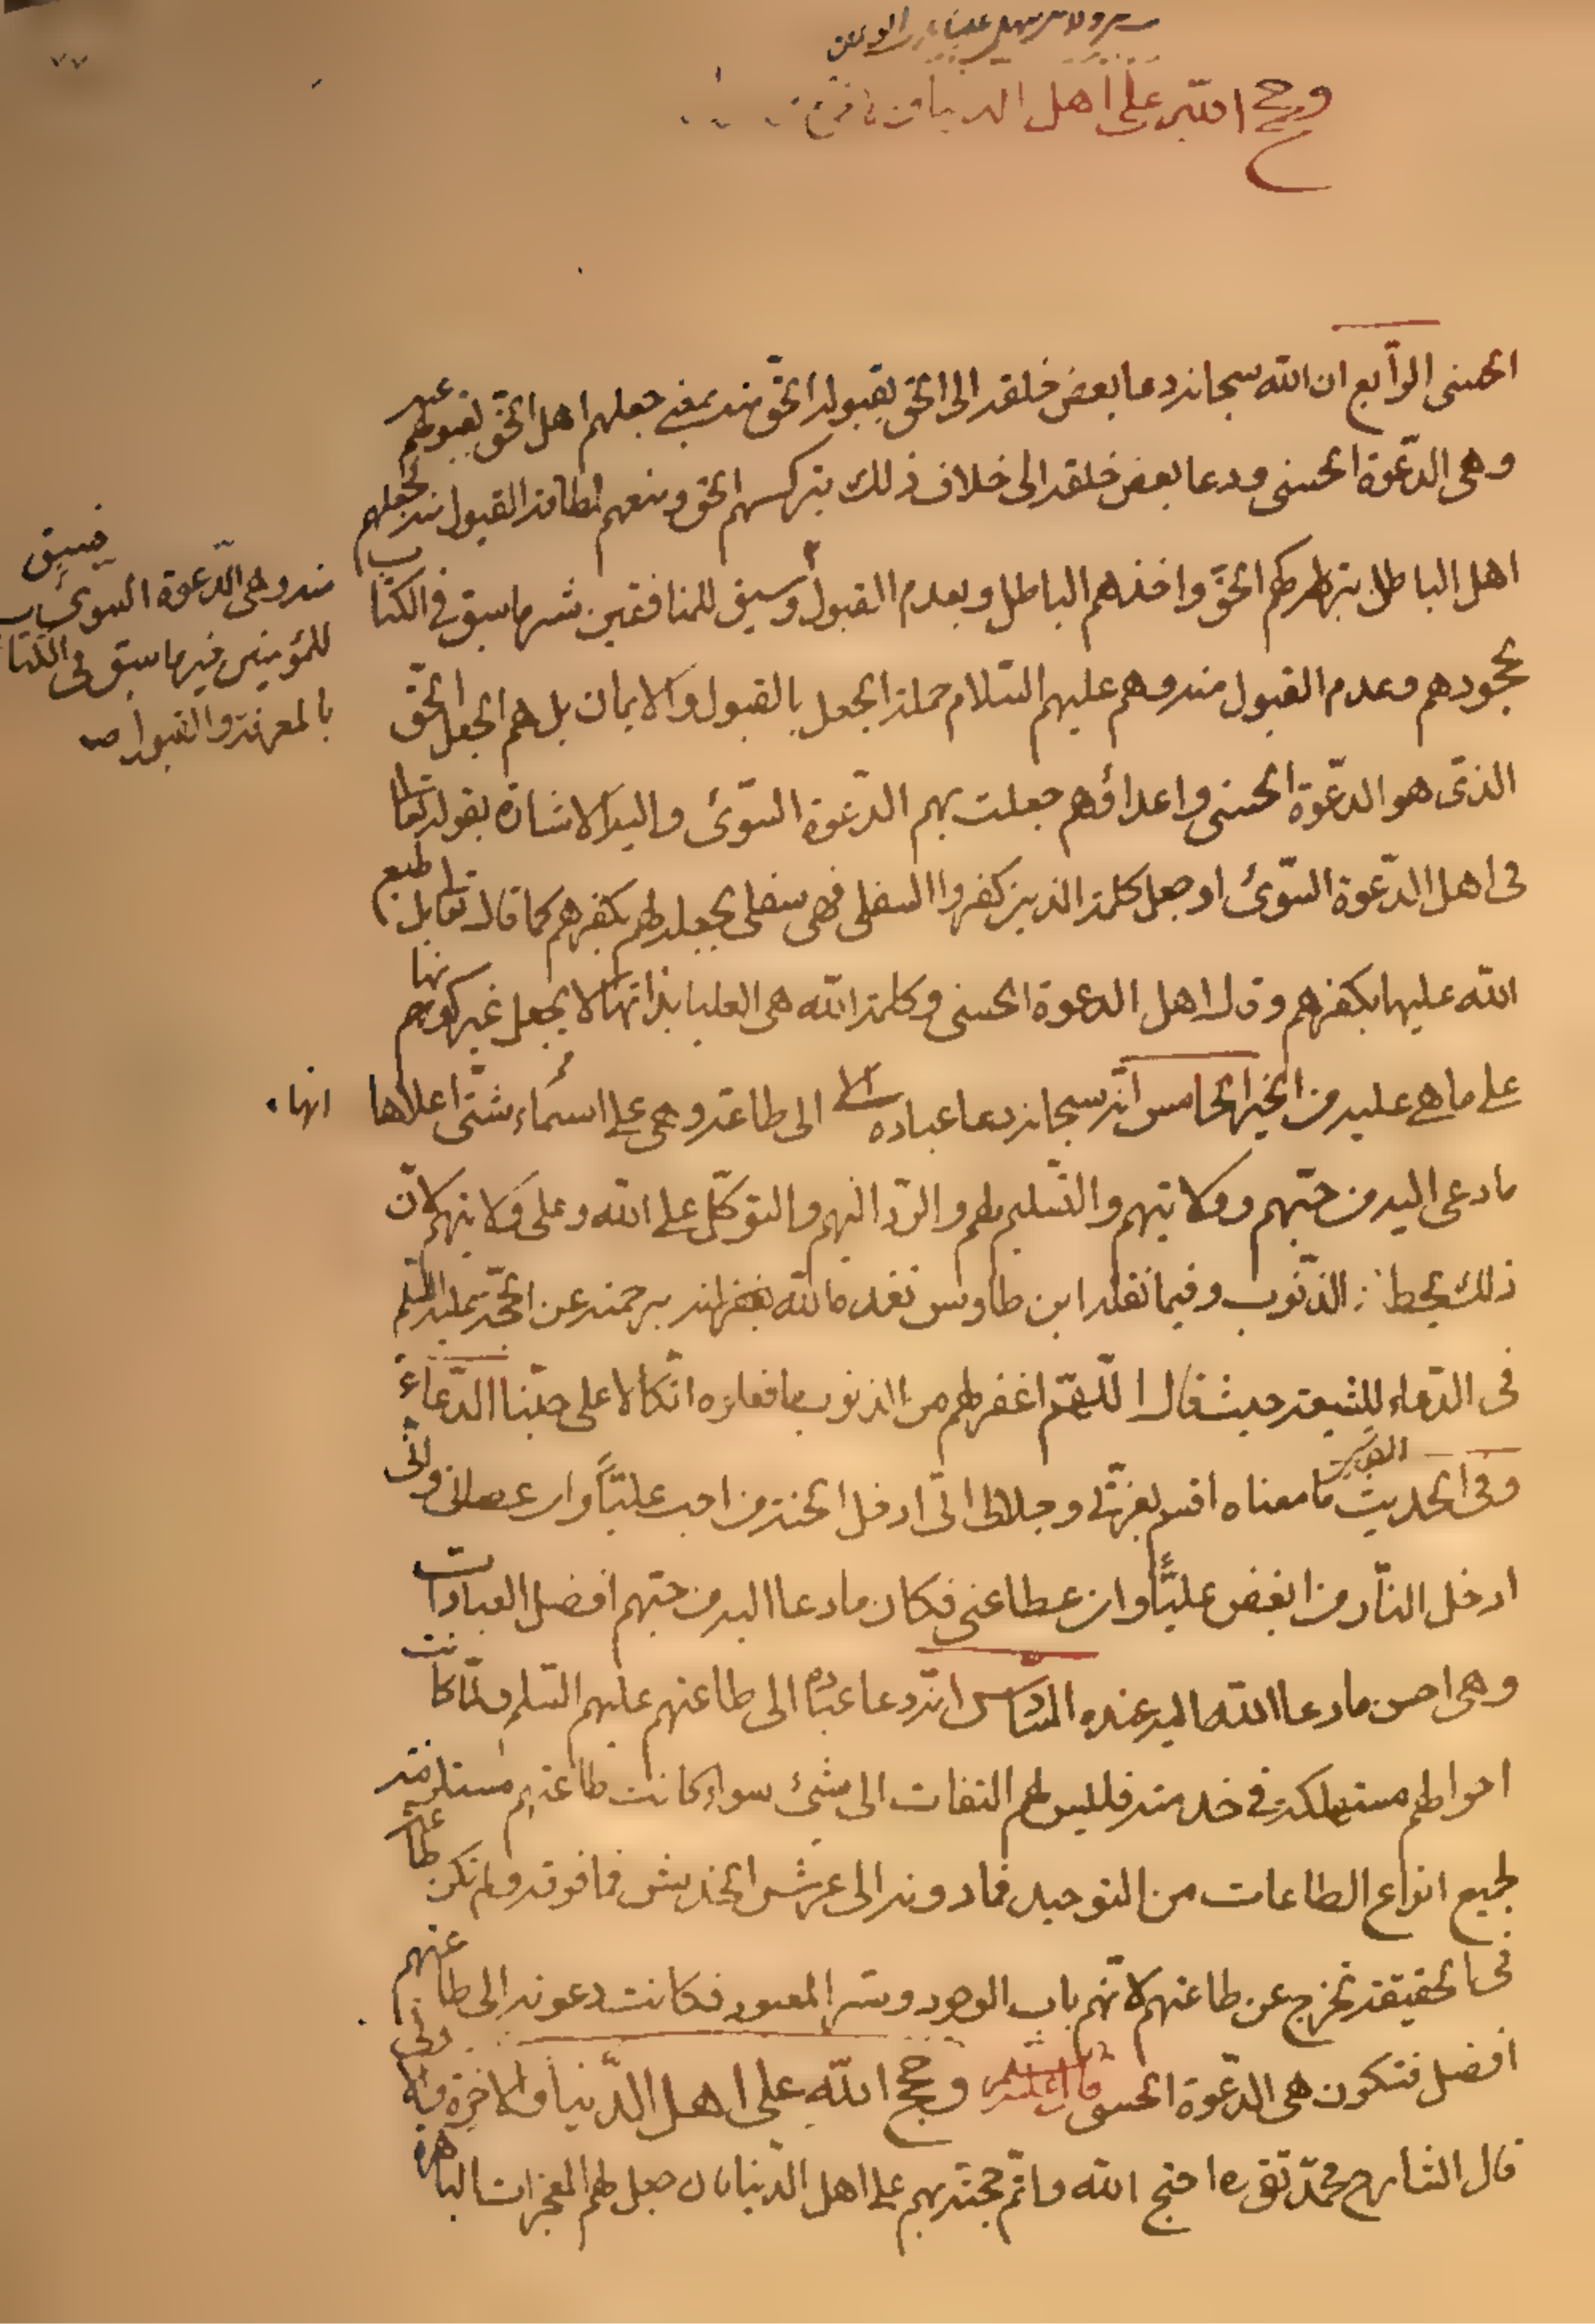 وحجج الله على اهل الدنيا
الحسنى الرابع ان الله سبحانه دعا بعض خلقه الى الحق بقبوله الحق منه بمعنى جعلهم اهل الحق لقبولهم عنه
وهى الدعوة الحسنى ودعا بعض خلقه الى خلاف ذلك بتركهم الحق ومنعهم لطافة القبول منه لجعلهم
اهل الباطل بتركهم الحق واخذهم الباطل وبعدم القبول وسبق للمنافقين شر ما سبق فى الكتاب
بجحودهم وعدم القبول منه وهم عليهم السّلام حملة الجعل بالقبول والايمان بل هم الجعل الحق
الذى هو الدعوة الحسنى واعداؤهم جعلت بهم الدعوة السّوئى واليه الاشارة بقوله تعالى
فى اهل الدعوة السّوئى اوجعل كلمة الذين كفروا السفلى فهى سفلى بجعله لهم بكفرهم كما قال تعالى بل طبع
الله عليها بكفرهم وقال لاهل الدعوة الحسنى وكلمة الله هى العليا بذاتها لا بجعل غير كونها
على ما هى عليه من الخير الخامس انّه سبحانه دعا عباده الى طاعته وهى على اسماء شتّى اعلاها انها
ما دعى اليه من حبّهم وولايتهم والتّسليم لهم والردّ اليهم والتوكّل على الله وعلى ولايتهم لانّ
ذلك يحط الذّنوب وفيما نقله ابن طاوس تغمده الله برحمته عن الحجّة عليه السّلم
فى الدّعاء للشيعة حيث قال اللّهمّ اغفر لهم من الذنوب ما فعلوه اتّكالا على حبّنا الدّعاء
وفى الحديث القدسى ما معناه اقسم بعزّتى وجلالى انّى ادخل الجنة من احب عليّاً وان عصانى وانّى
ادخل النّار من ابغض عليّاً وان اطاعنى فكان ما دعا اليه من حبّهم افضل العبادات
وهى احسن ما دعا الله اليه عنده السّادس انّه دعا عباده الى طاعتهم عليهم السّلم ولمّا كانت
احوالهم مستهلكة فى خدمته فليس لهم التفات الى شئ سواه كانت طاعتهم مستلزمة
لجميع انواع الطاعات من التوحيد فما دونه الى عرش الخدش فما فوقه ولم تكن طاعة
فى الحقيقة تخرج عن طاعتهم لانّهم باب الوجود وسرّ المعبود فكانت دعوته الى طاعتهم
افضل فتكون هى الدّعوة الحسنى قال عليه السّلم وحجج الله على اهل الدّنيا والاخرة والاولى
قال الشارح محمّد تقى ره احتج الله واتمّ حجّته بهم على اهل الدّنيا بان جعل لهم المعجزات الباهرة
منه وهى الدّعوة السوئى فسبق
للمؤمنين خير ما سبق فى الكتاب
بالمعرفة والقبول صح